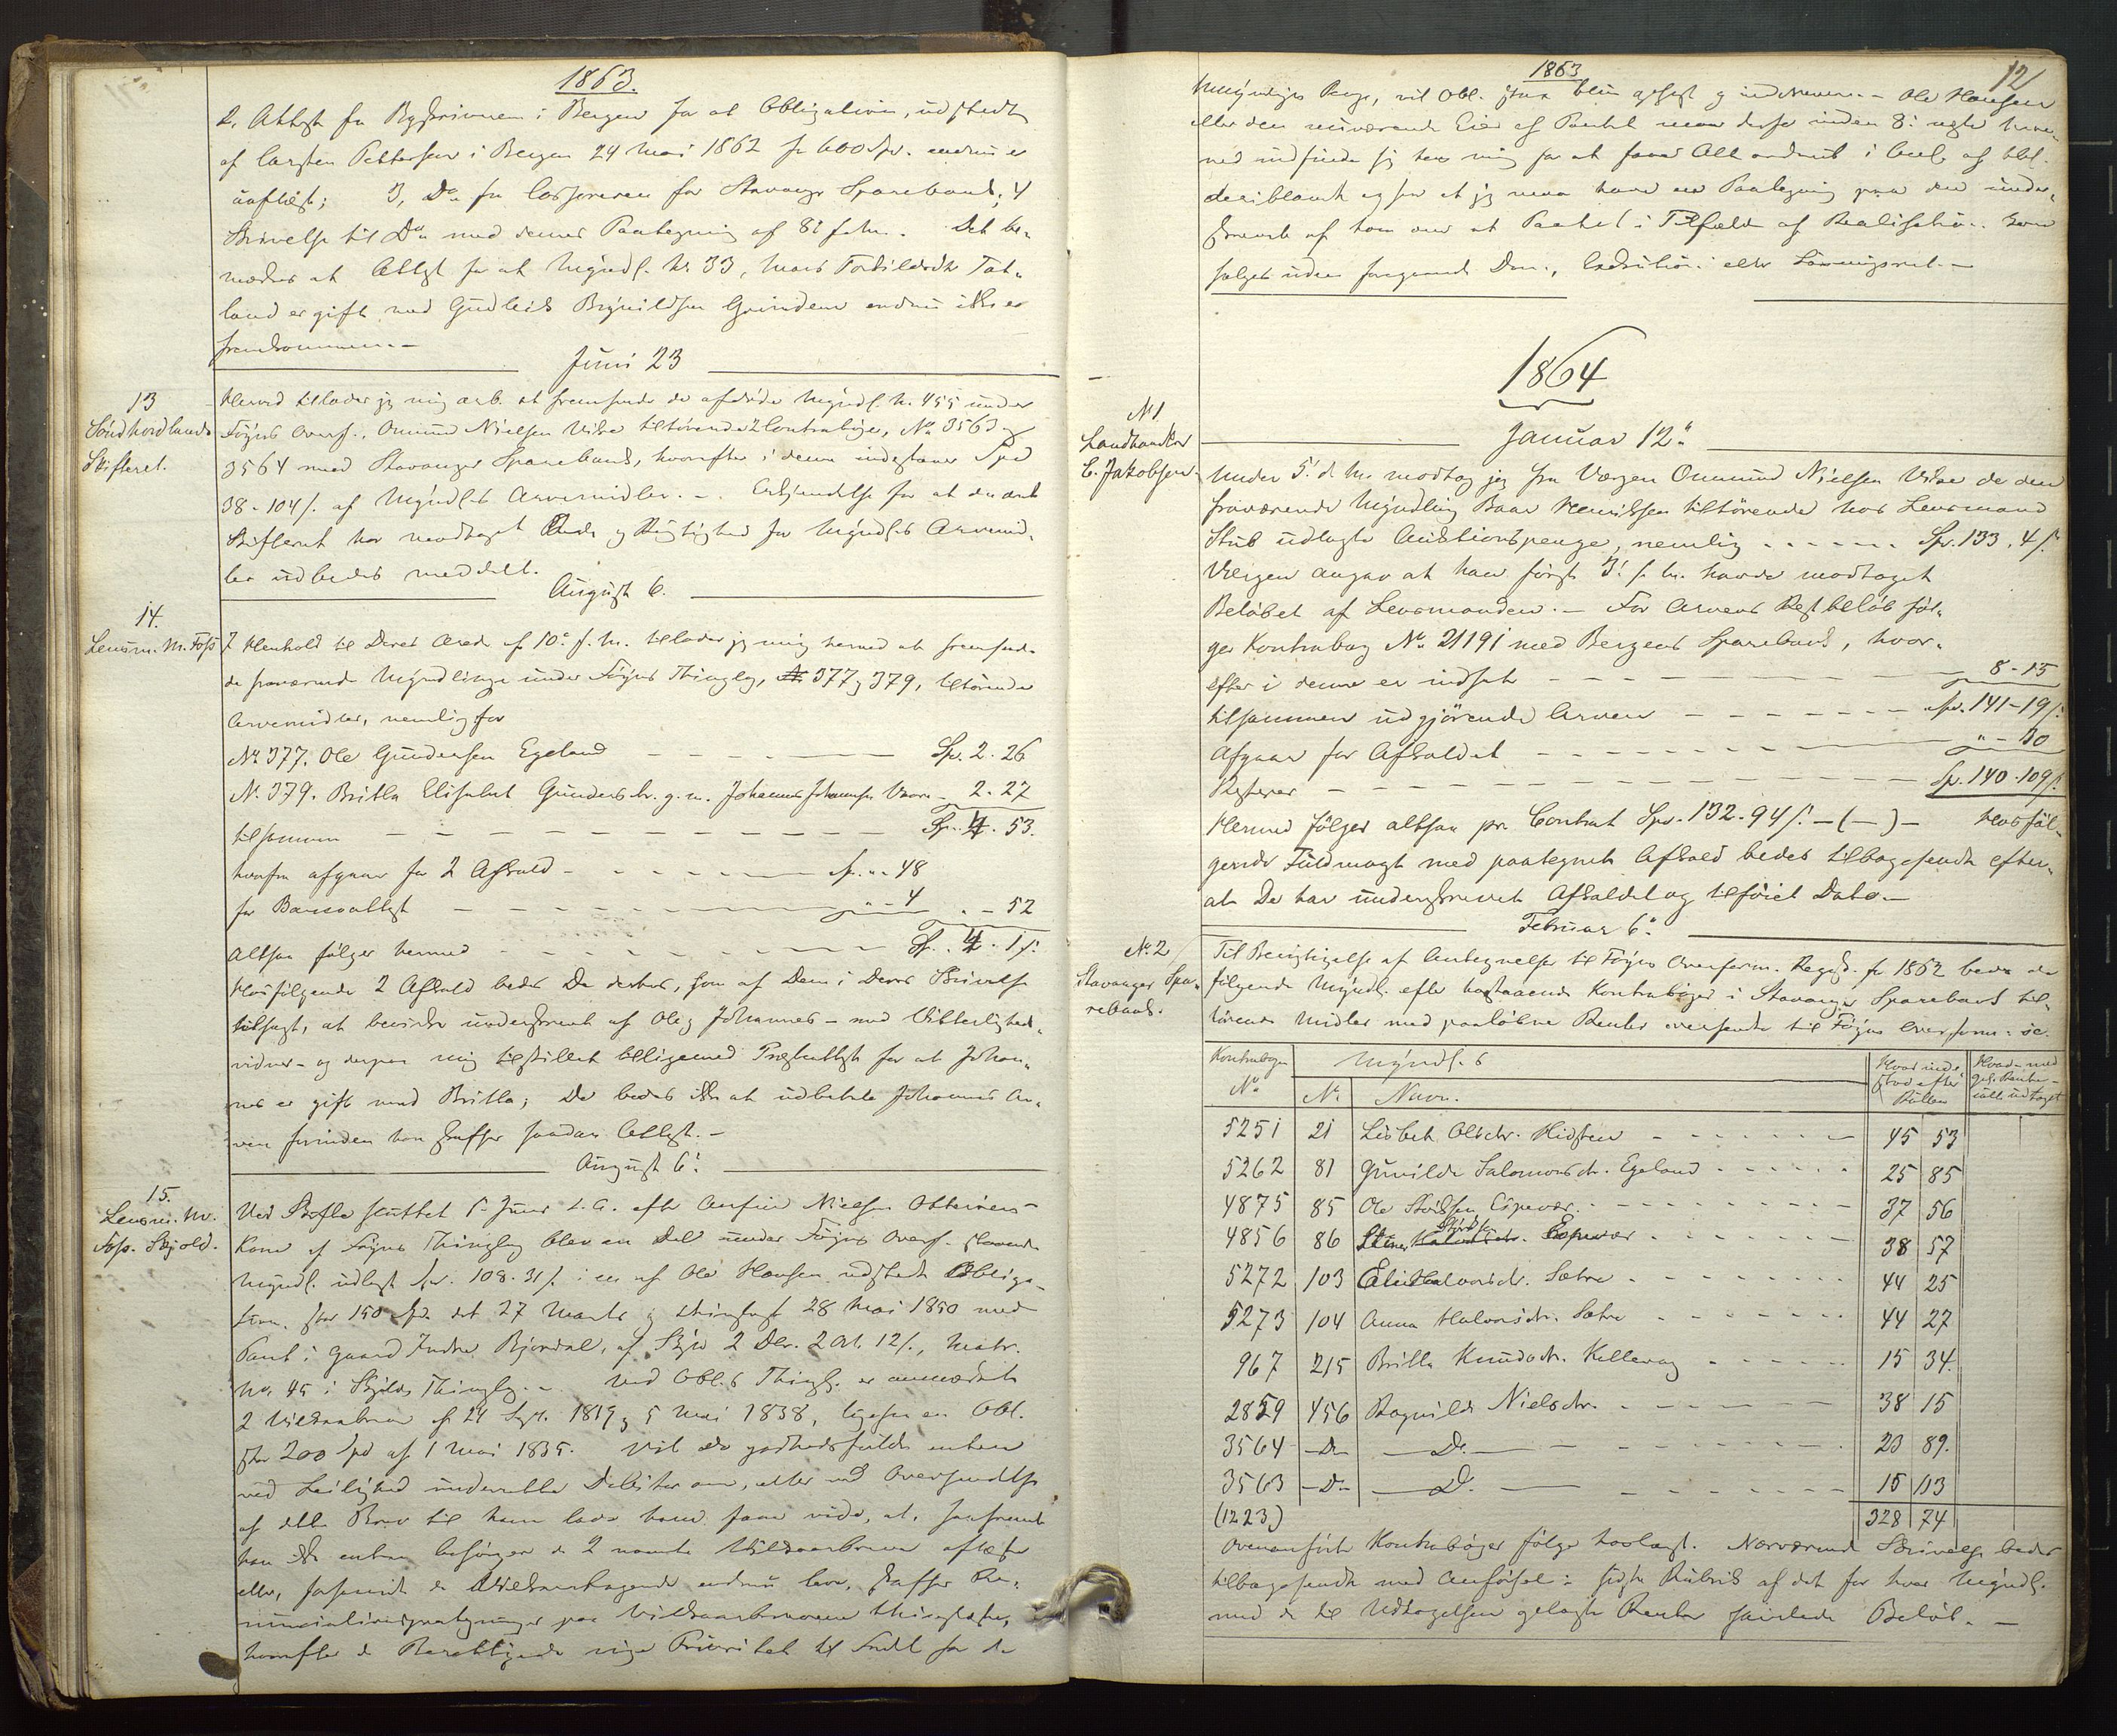 1863.
2, Attest fra Byskriveren i Bergen for at Obligation, udstedt
af Carsten Pettersen i Bergen 24 Mai 1862 for 600 Spd. endnu er
uaflæst; 3, Do fra Cassereren for Stavanger Sparebank; 4
Skrivelse til Do med dennes Paategning af 8de f.M. Det be-
mærkes at Attest for at Myndl. No 33, Tor
land er gift med Gudleik Brynildsen Grindem endnu ikke er
fremkommen.-
Juni 23
13
Söndhordlands
Skifteret.
Herved tillader jeg mig ærb. at fremsende de afdöde Myndl. No 455 under
Föyns Overf., Omund Nielsen Vikse tilhörende 2 Contraböger, No 3563 og
3564 med Stavanger Sparebank, hvorefter i denne indestaaer Spd
38-104/. af Myndl.s Arvemidler. - Erkjendelse for at den ærede
Skifteret har modtaget Rigtighed for Myndl.s Arvemid-
ler udbedes meddelt.
August 6.
14.
Lensm. M. Foss
I Henhold til Deres Ærede af 10de f.M. tillader jeg mig herved at fremsende
de fraværende Myndlinge under Föyns Thinglag, No 377 og 379, tilhörende
Arvemidler, nemlig for
No 377. Ole Gundersen Egeland - - - Sp. 2. 26
No. 379. Britta Elisabet Gundersdtr. g.m. Johannes Johannesen - 2. 27
tilsammen - - - Sp. 4. 53.
hvorfra afgaaer for 2 Afkald - - - Sp. „ . 48
for - - - „ - 4 „ - 52
Altsaa fölger hermed - - - Sp. 4. 1/.
Hosfölgende 2 Afkald bedes De derhos, som af Dem i Deres Skrivelse
tilsagt, at bevirke underskrevet af Ole og Johannes - med Vitterligheds-
vidner - og derpaa mig tilstillet tilligemed Præsteattest for at Johan-
nes er gift med Britta; De bedes ikke at udbetale Johannes Ar-
ven forinden han skaffer saadan Attest. -
August 6.
15.
Lensm. M.
Foss. Skjold.
Ved Skifte sluttet 5 Juni d.A. efter Anfin Nielsen Ottersens
Kone af Föyns Thinglag blev en Del under Föyns Overf. staaende
Myndl. udlagt Spd. 108.31/. i en af Ole Hansen udstedt Obliga-
tion. stor 150 Spd. dat 27 Marts og thinglæst 28 Mai 1850 med
Pant i Gaard Indre Bjordal, af Skyld 2 Dlr. 2 Ort. 12/., Matr.
No. 45 i Skjolds Thinglag. - Ved Obl.s Thingl. er anmærket
2 Vilkaarbreve af 24 Sept. 1819 og 5 Mai 1838, ligesaa en Obl.
stor 200 Spd af 1 Mai 1835. Vil De godhedsfuldt enten
ved Leilighed underrette Debitor om, eller ved Oversendelse
af dette Brev til ham lade ham faae vide, at, saafremt
han ikke enten besörger de 2 nævnte Vilkaarbreve aflæste
eller, saafremt de Vilkaarstagende endnu leve, skaffer Re-
nunciationspaategninger paa Vilkaarbrevene thinglæste,
hvorefter de Berettigede vige Prioritet til Fordel for de
12
1863
Myndiges Penge, vil Obl. strax blive opsagt og inddreven. - Ole Hansen
eller den nuværende Eier af Pantet maa derfor inden 8 Dage herom
ved indfinde sig hos mig for at faae Alt ordnet i Anl. af Obl.
deriblandt ogsaa at jeg maa have en Paategning paa den under-
skrevet af ham om at Pantet i Tilfælde af Realisation kan
sælges uden foregaaende Dom, Exekution eller Lösningsret. -
1864
No 1
Landhandler
C. Jakobsen.
Januar 12te
Under 5te d.M. modtog jeg fra Værgen Ommund Nielsen Vikse de den
fraværende Myndling Baar Henriksen tilhörende hos Lensmand
Stub udlagte Auktionspenge, nemlig . . . . . Sp. 133. 4/.
Værgen angav at han först 3de f.M. havde modtaget
Belöbet af Lensmanden. - For Arvens Restbelöb föl-
ger Kontrabog No 21191 med Bergens Sparebank, hvor-
efter i denne er indsat - - - 8-15
tilsammen udgjörende Arven - - - Sp. 141-19/.
Afgaar for Afkaldet - - - „ - 30
Resterer - - - Sp. 140.109/.
Hermed fölger altsaa pr. Contrat Spd. 132-94/. -(-)- Hosföl-
gende Fuldmagt med paategnet Afkald bedes tilbagesendt efter-
at De har underskrevet Afkaldet og tilföiet Dato. -
Februar 6te
No. 2
Stavanger Spa-
rebank.
Til Berigtigelse af Antegnelser til Föyns Overform. Regnsk. for 1862 bedes de
fölgende Myndl. efter hosstaaende Kontraböger i Stavanger Sparebank til-
hörende Midler med paalöbne Renter oversendte til Föyns Overform: sc.
Kontrabogens No | Myndl.s No | Navn. | Hvad inde-stod efter Bilten | Hvad med Rente - udtaget
5251 | 21 | Lisbet Olsdtr. Hidsten - - - | 45 | 53
5262 | 81 | Gunilde Salomonsdtr. Egeland - - - | 25 | 85
4875 | 85 | Ole Espevær. - - - | 37 | 56
4856 | 86 | Espevær - - - | 38 | 57
5272 | 103 | Eli Halvorsdr. Sætre - - - | 44 | 25
5273 | 104 | Anna Halvorsdtr. Sætre - - - | 44 | 27
967 | 215 | Britta Knudsdtr. Kallevåg - - - | 15 | 34.
2859 | 456 | Ragnilde Nielsdtr. - - - | 38 | 15
3564 | -Do- | -Do- - - - | 23 | 89.
3563 | -Do- | -Do- - - - | 15 | 113
(1223,) | 328 | 74
Ovenanförte Kontraböger fölge hoslagt. Nærværende Skrivelse bedes
tilbagesendt med Anförsel i sidste Rubrik af det for hver Myndl.
med de til Udtagelsen gelagte Renter samlede Belöb. -